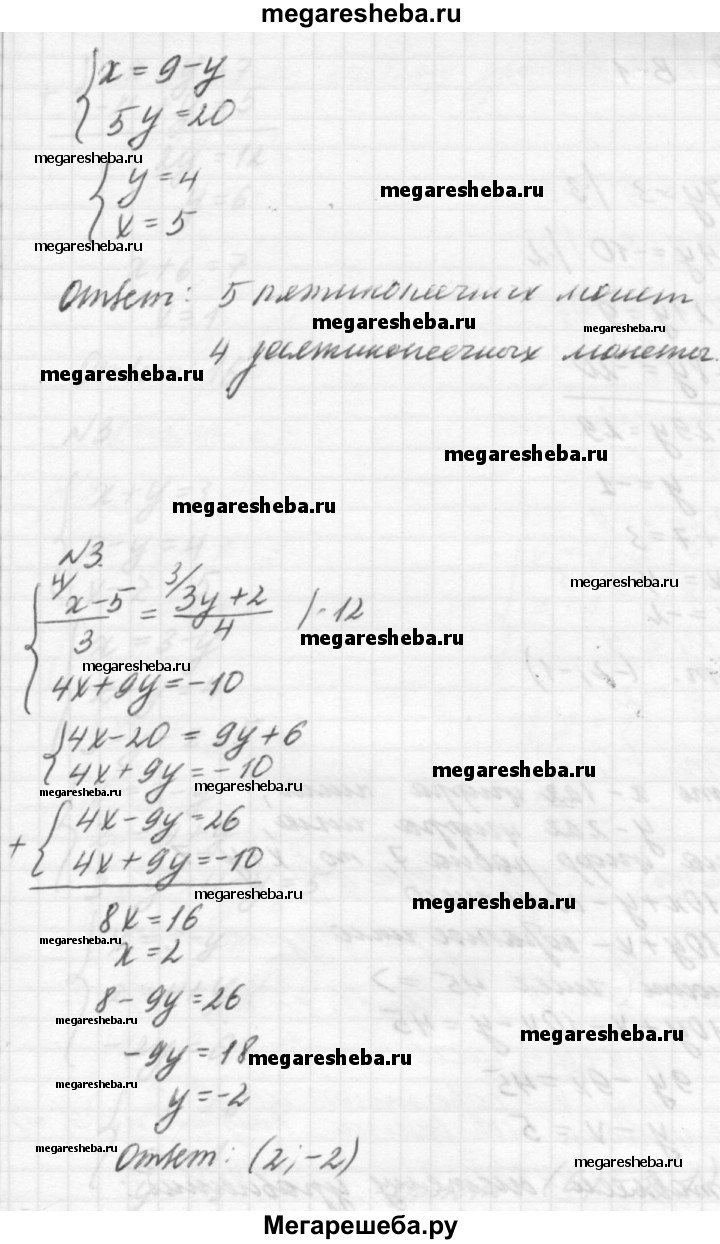 megaresheba.ru
x = 9 - y
5y = 20
megaresheba.ru
y = 4
megaresheba.ru
x = 5
megaresheba.ru
Ответ: 5 пятикопеечных монет
megaresheba.ru
megaresheba.ru
4 десятикопеечных монеты.
megaresheba.ru
megaresheba.ru
megaresheba.ru
№3.
megaresheba.ru
4/ x-5 / 3 = 3/ 3y+2 / 4 |·12
megaresheba.ru
megaresheba.ru
4x+9y=-10
4x-20 = 9y+6
4x+9y=-10
megaresheba.ru
megaresheba.ru
megaresheba.ru
+ 4x-9y=26
4x+9y=-10
megaresheba.ru
megaresheba.ru
8x=16
megaresheba.ru
x=2
8-9y=26
megaresheba.ru
megaresheba.ru
-9y=18
megaresheba.ru
megaresheba.ru
y=-2
megaresheba.ru
Ответ: (2; -2)
megaresheba.ru
Мегарешеба.ру